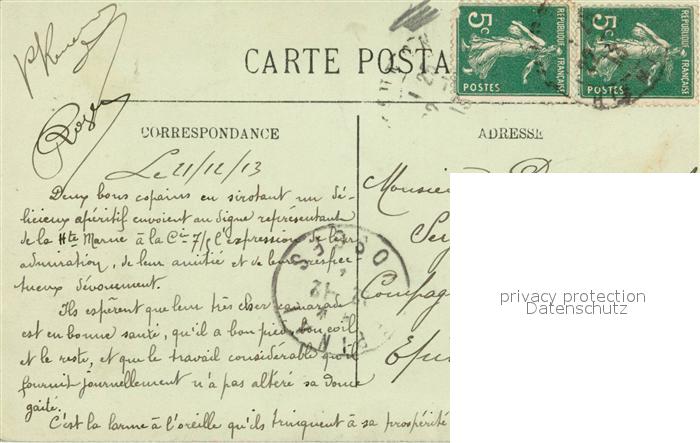 5c 5c
REPUBLIQUE FRANÇAISE REPUBLIQUE FRANÇAISE
POSTES POSTES
CARTE POSTA
Roger
CORRESPONDANCE
ADRESSE
Le 21/12/13
Deux bons copains en sirotant un dé-
licieux apéritif envoient au digne représentant
de la Hte Marne à la Cie 7/5 l'expression de leur
admiration, de leur amitié et de leur respec-
tueux dévouement.
Ils espèrent que leur très cher camarade
est en bonne santé, qu'il a bon pied, bon œil
et le reste, et que le travail considérable qu'il
fournit journellement n'a pas altéré sa douce
gaité.
C'est la larme à l'oreille qu'ils trinquent à sa prospérité
Monsieur
Compag
privacy protection
Datenschutz